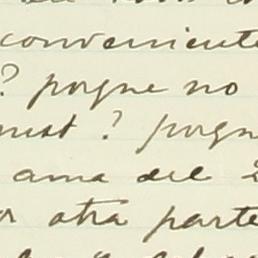 conveniente
? porque no
? porque
ama del 2
or otra parte